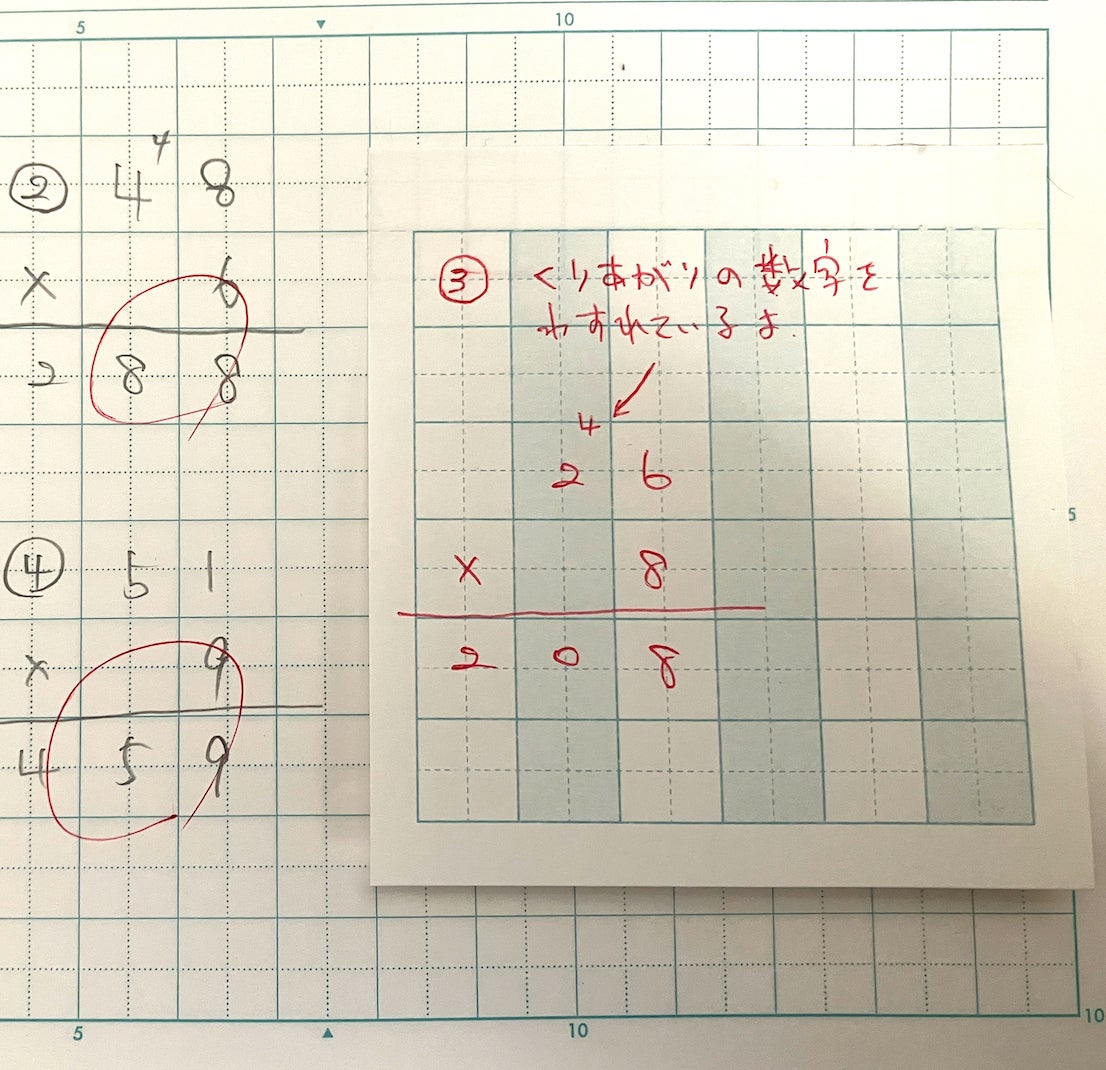 5 ▼ 10
② 4 4 8
× 6
2 8 8
④ 5 1
× 9
4 5 9
③ くりあがりの数字を
わすれているよ.
4
2 6
× 8
2 0 8
5
5 ▲ 10
10